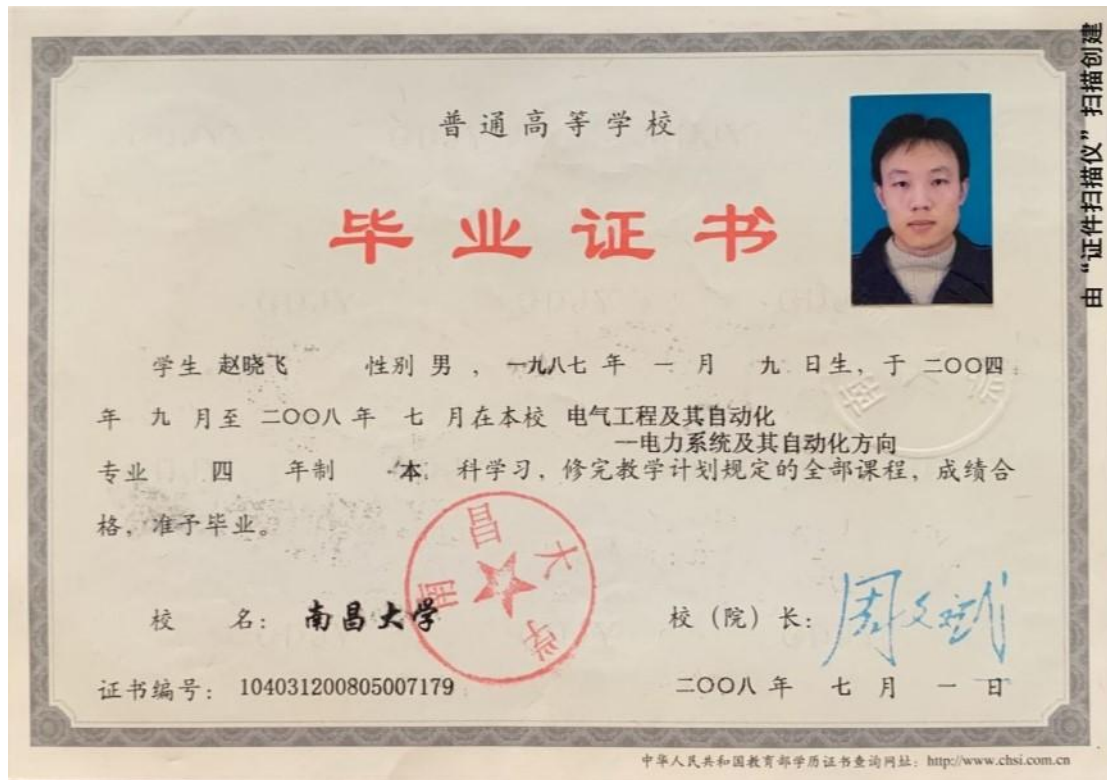 普通高等学校
毕业证书
学生 赵晓飞 性别 男 ，一九八七 年 一 月 九 日生，于 二〇〇四
年 九 月至 二〇〇八 年 七 月在本校 电气工程及其自动化
--电力系统及其自动化方向
专业 四 年制 本 科学习，修完教学计划规定的全部课程，成绩合
格，准予毕业。
南昌大学
校 名： 南昌大学
校（院）长： 周文斌
证书编号： 104031200805007179
二〇〇八 年 七 月 一 日
中华人民共和国教育部学历证书查询网址：http://www.chsi.com.cn
由“证件扫描仪”扫描创建